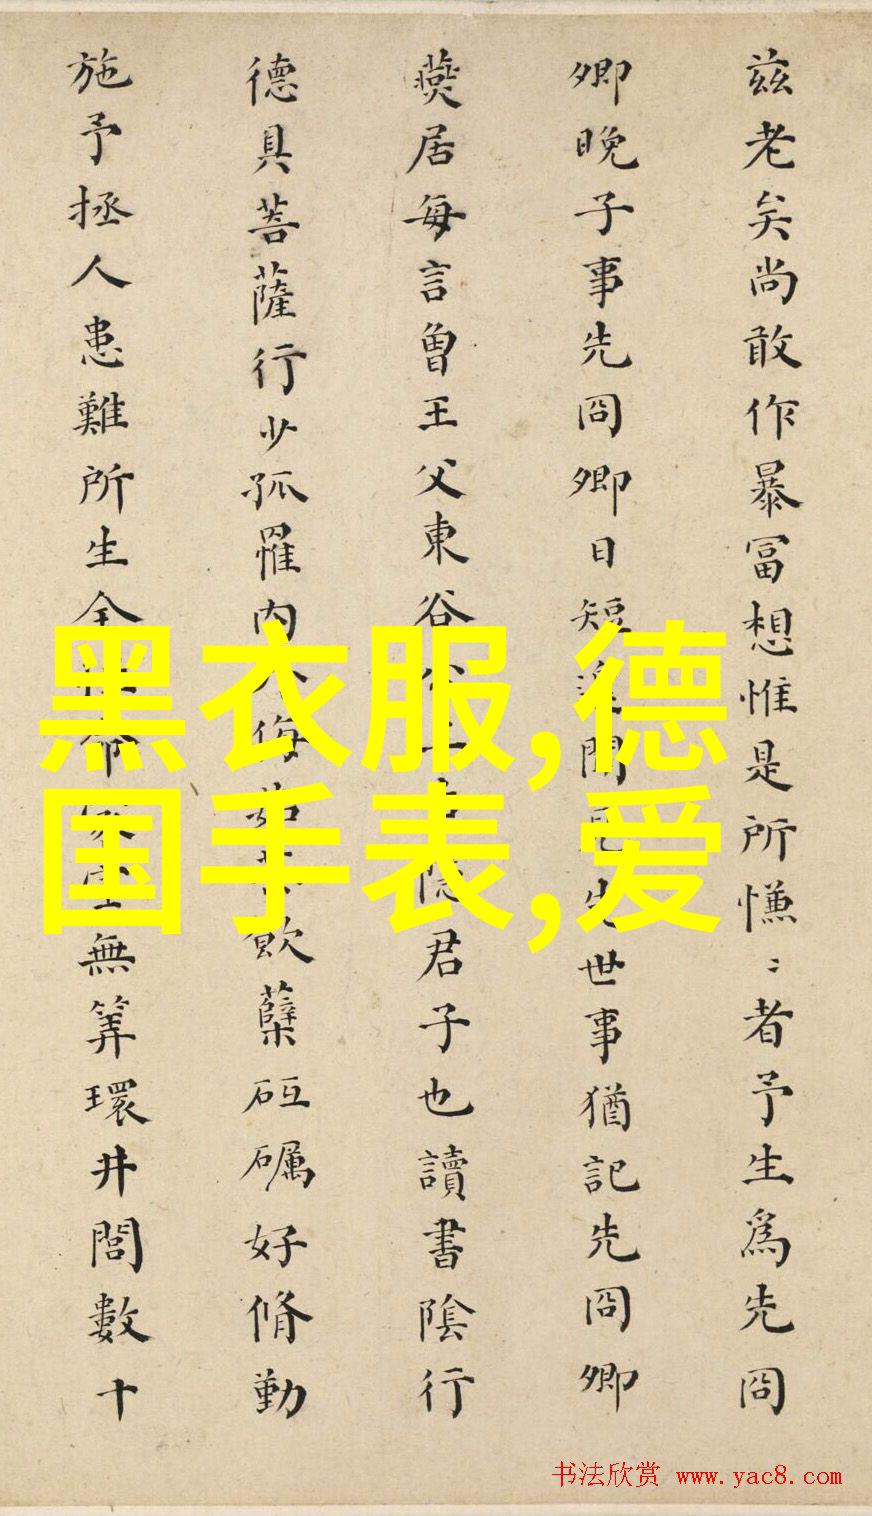 兹老矣尚敢作暴冨想惟是所慊〻者予生爲先冏
卿晚子事先冏卿日短逮聞見先世事猶記先冏卿
燕居每言曾王父東谷隱君子也讀書陰行
德具菩薩行少孤罹内侮飲蘖砥礪好脩勤
施予拯人患難所生全無筭環井閭數十
黑衣服,德
国手表,爱
书法欣赏 www.yac8.com